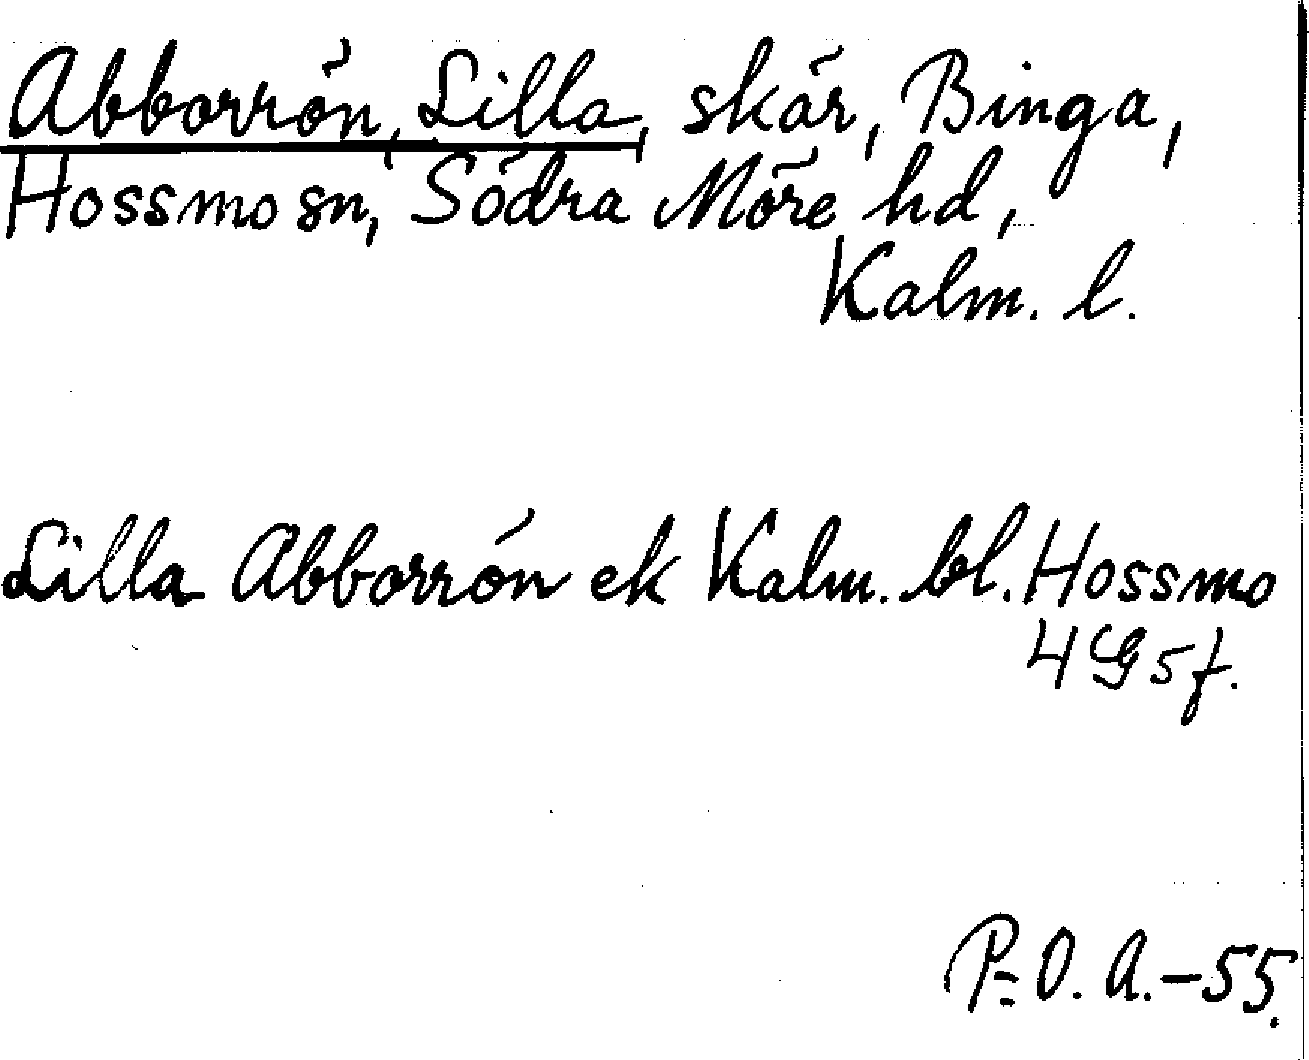 Abborrön, Lilla, skär, Binga,
Hossmo sn, Södra Möre hd,
Kalm. l.
Lilla Abborrön ek Kalm. bl. Hossmo
4 G 5 f.
P-O. A.-55.